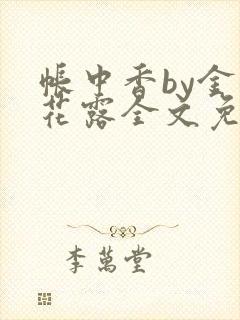 帐中香by金
花露全文免
李萬堂